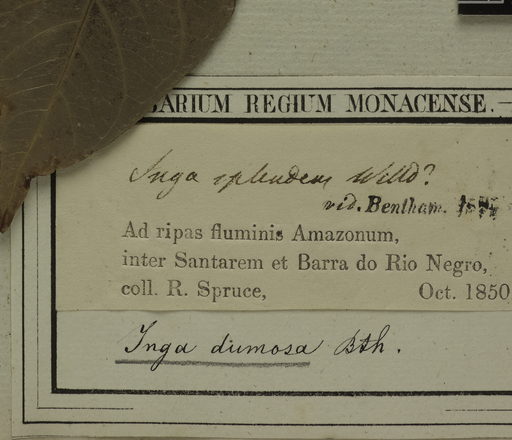 BARIUM REGIUM MONACENSE.
Inga splendens Willd?
vid. Bentham.
Ad ripas fluminis Amazonum,
inter Santarem et Barra do Rio Negro,
coll. R. Spruce, Oct. 1850
Inga dumosa Bth.